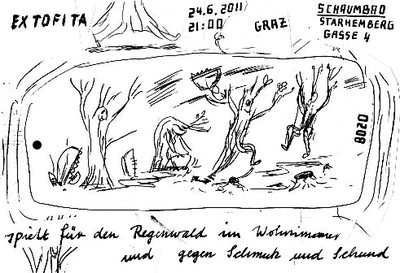 EXTOFITA
24.6.2011
21:00
GRAZ
SCHAUMBAD
STARHEMBERG
GASSE 4
8020
spielt für den Regenwald im Wohnzimmer
und gegen Schmutz und Schund